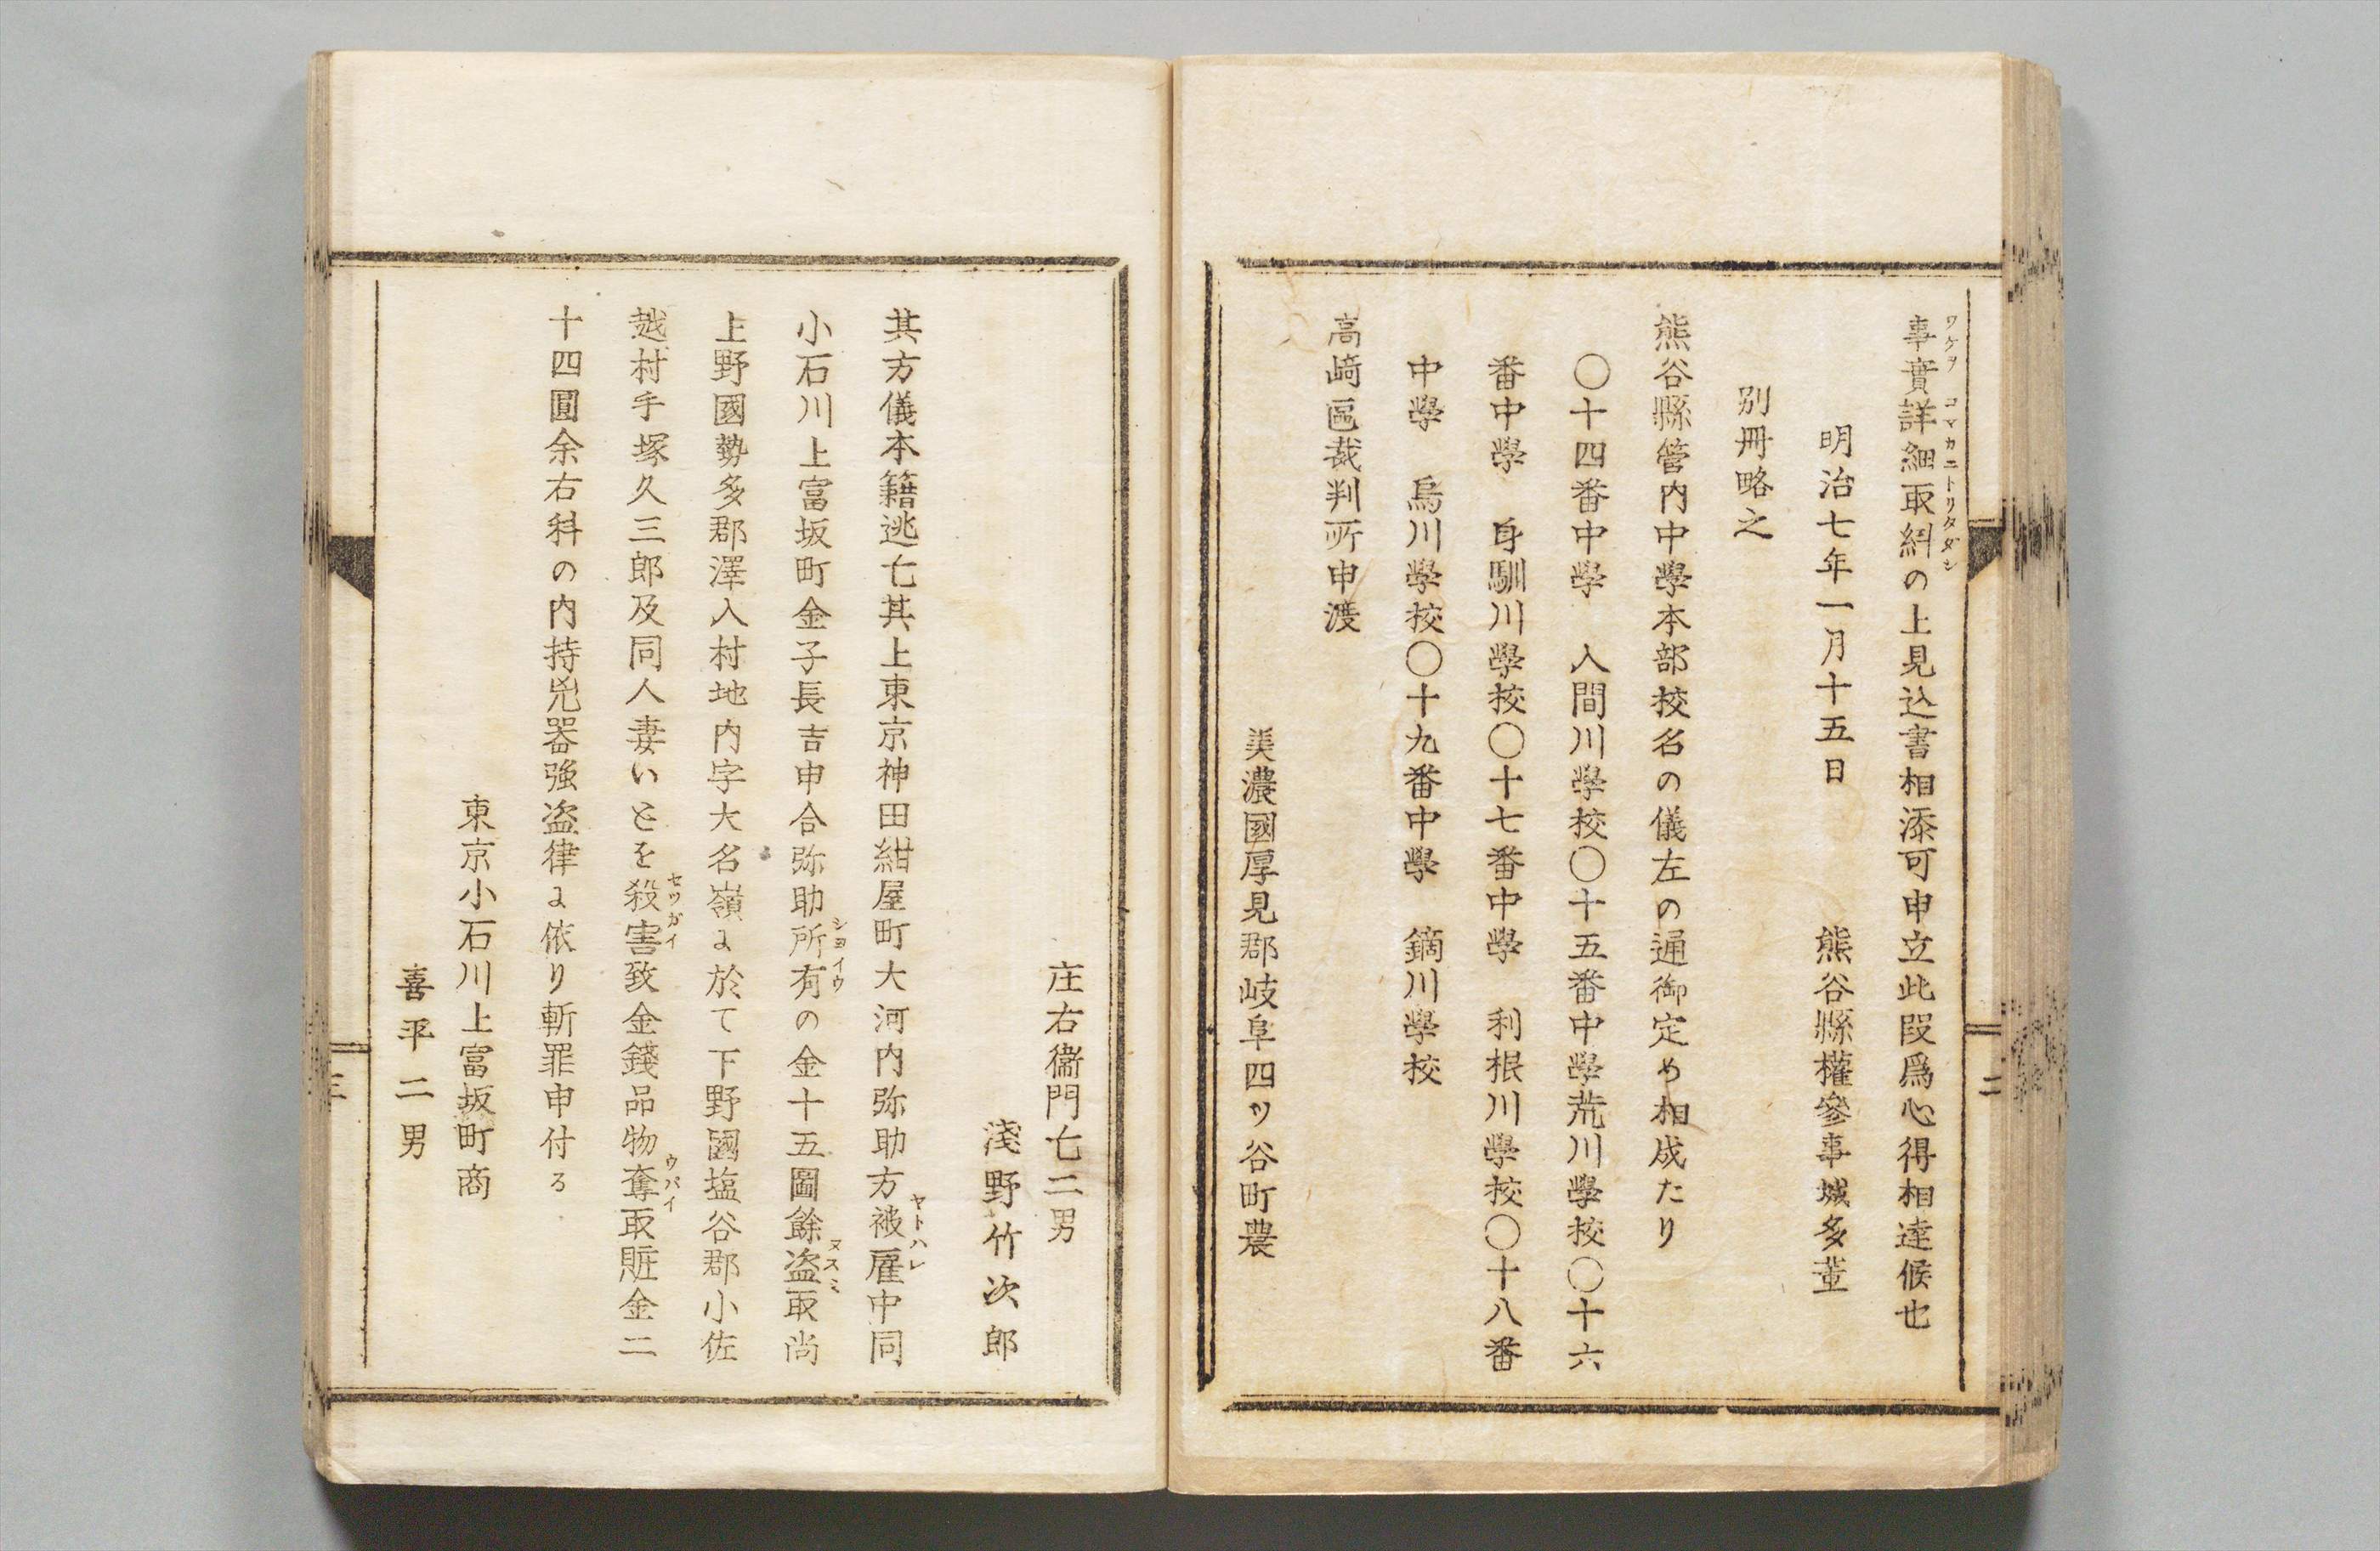 事實詳細取糾の上見込書相添可申立此段爲心得相達候也
ワケヲ コマカニトリタダシ
明治七年一月十五日 熊谷縣權參事城多董
別冊略之
熊谷縣管内中學本部校名の儀左の通御定め相成たり
〇十四番中學 入間川學校〇十五番中學荒川學校〇十六
番中學 身馴川學校〇十七番中學 利根川學校〇十八番
中學 烏川學校〇十九番中學 鏑川學校
高﨑區裁判所申渡
美濃國厚見郡岐阜四ツ谷町農
二
庄右衞門七二男
淺野竹次郎
其方儀本籍逃亡其上東京神田紺屋町大河内弥助方被雇中同
ヤトハレ
小石川上富坂町金子長吉申合弥助所有の金十五圓餘盗取尚
シヨイウ ヌスミ
上野國勢多郡澤入村地内字大名嶺ゟ於て下野國塩谷郡小佐
越村手塚久三郎及同人妻いとを殺害致金錢品物奪取賍金二
セツガイ ウバイ
十四圓余右科の内持兇器強盗律ゟ依り斬罪申付る
東京小石川上富坂町商
喜平二男
三